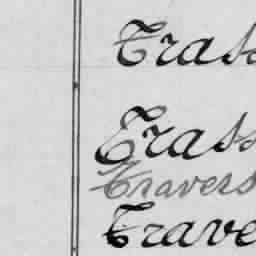 Trass
Trass
Travers
Trave